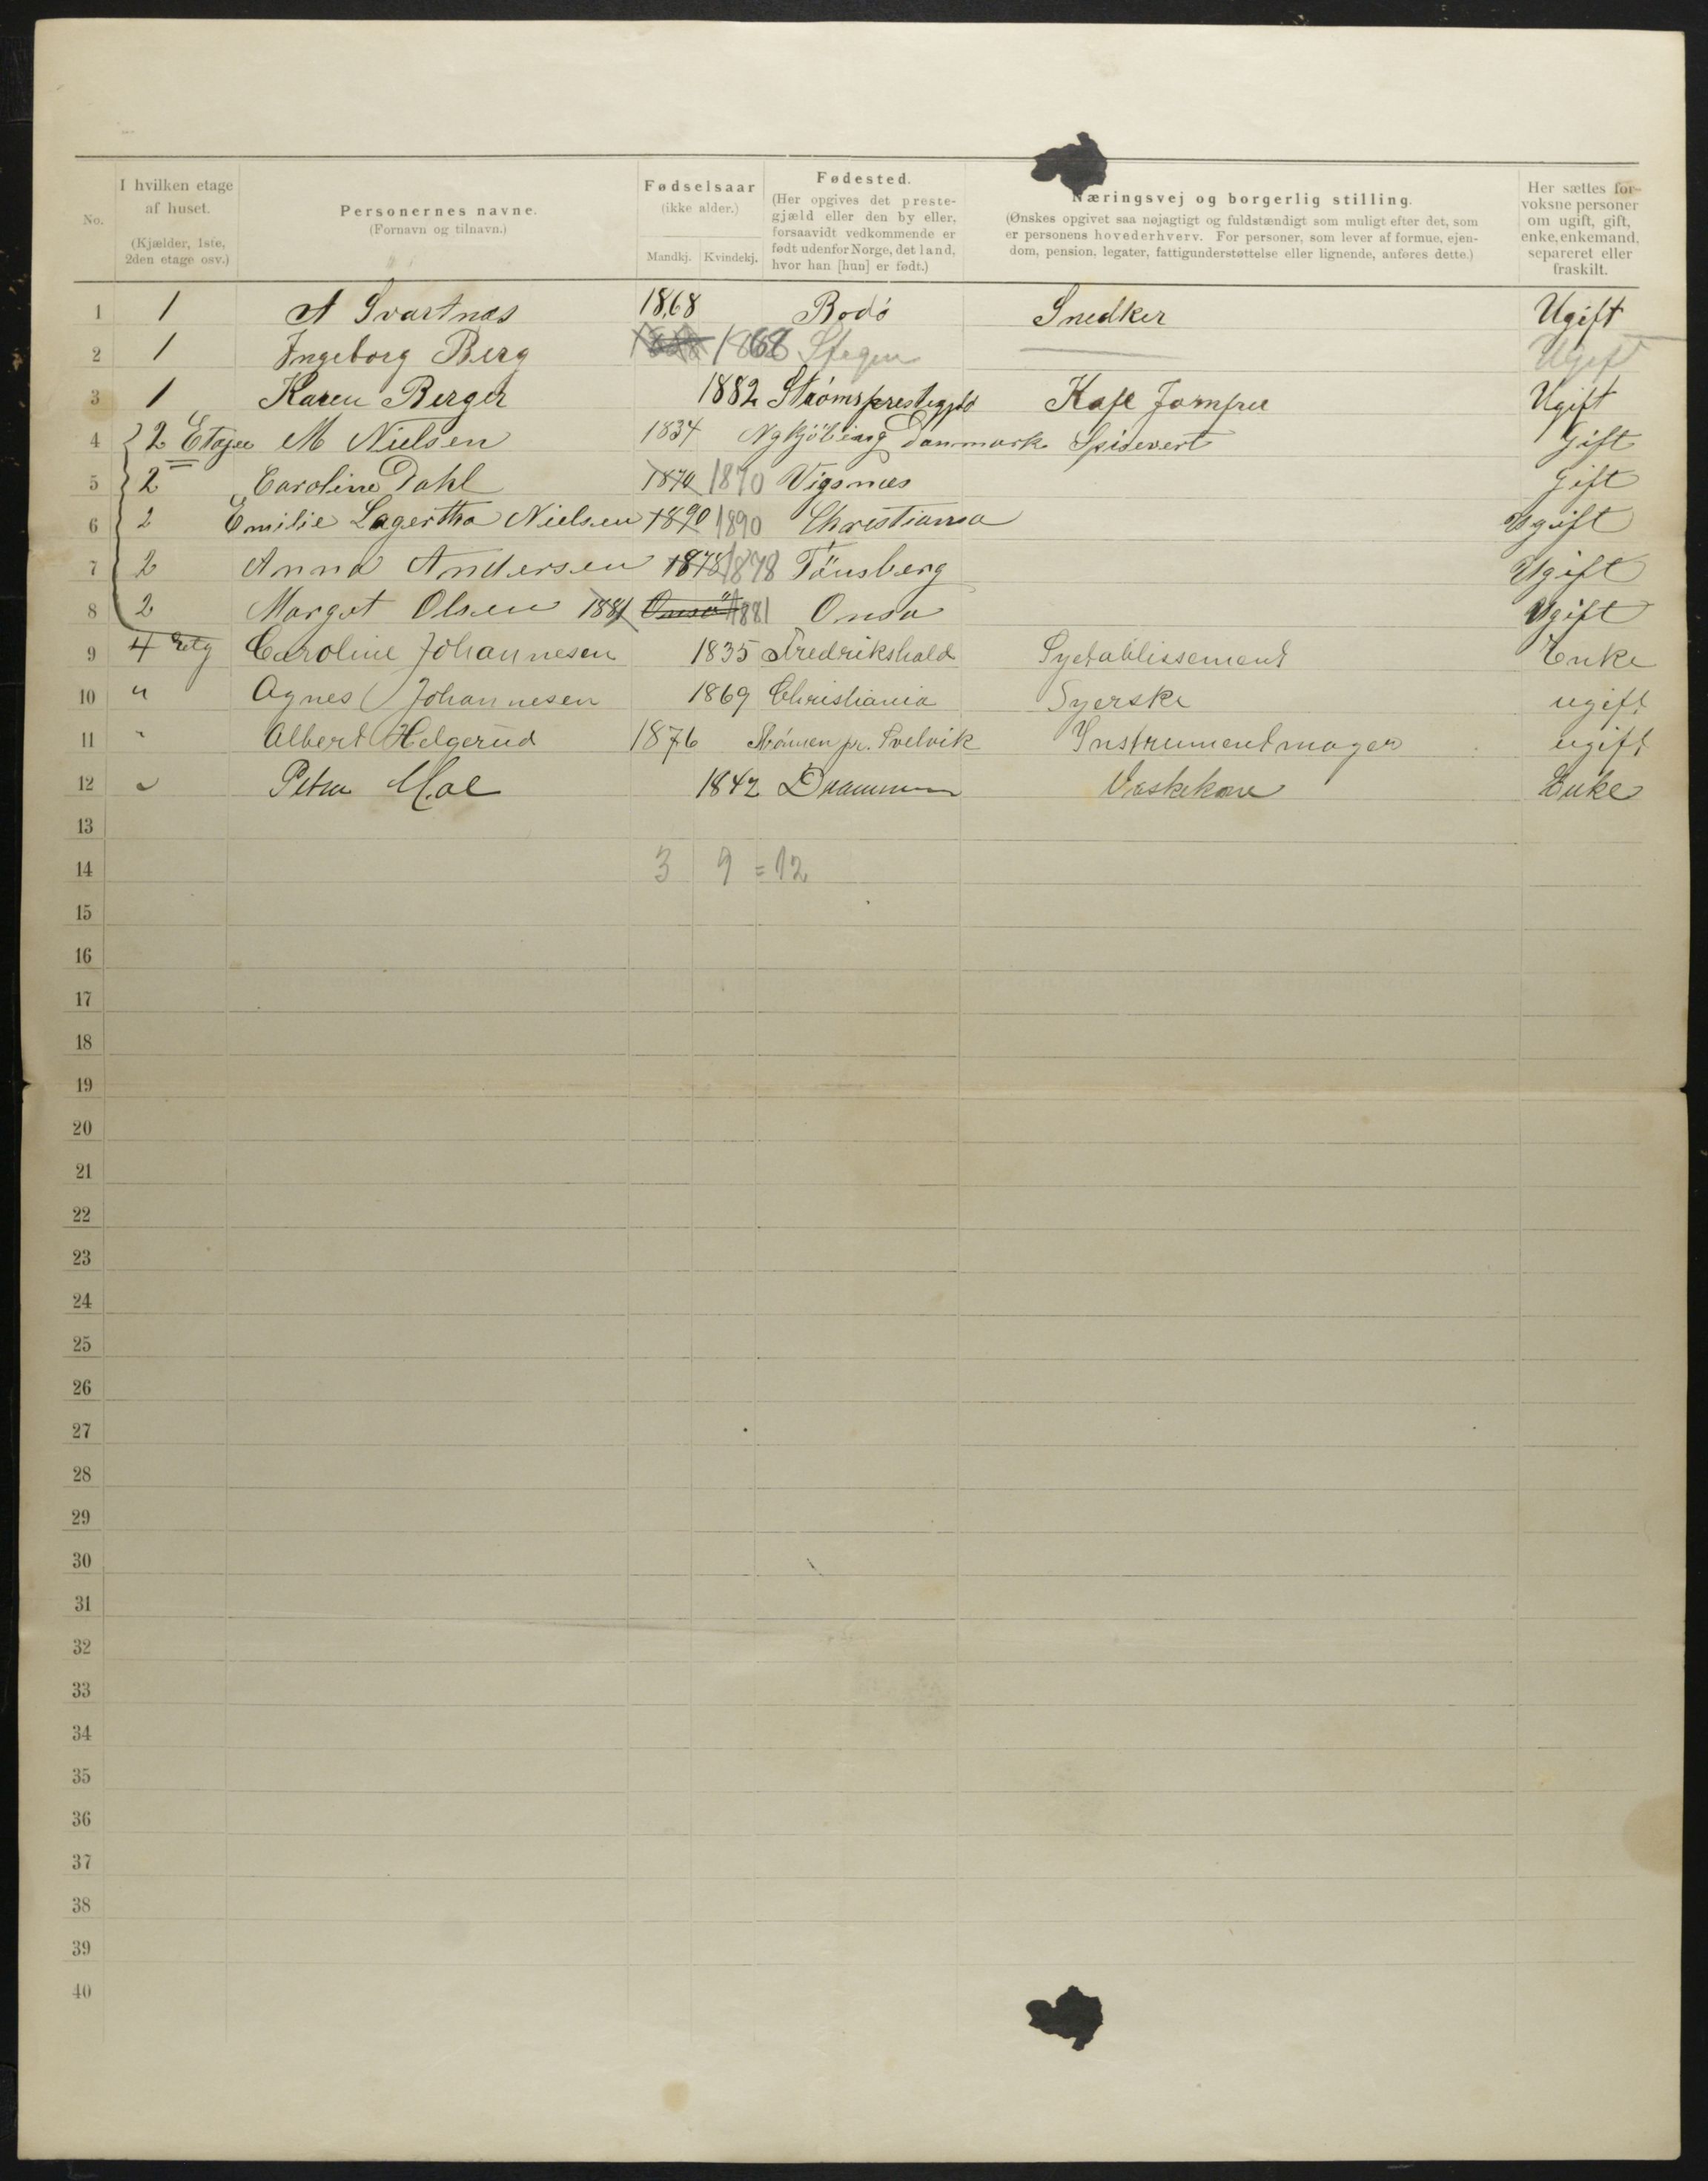 No.
I hvilken etage af huset.
(Kjælder, 1ste, 2den etage osv.)
Personernes navne.
(Fornavn og tilnavn.)
Fødselsaar
(ikke alder.)
Mandkj. Kvindekj.
Fødested.
(Her opgives det prestegjæld eller den by eller, forsaavidt vedkommende er født udenfor Norge, det land, hvor han [hun] er født.)
Næringsvej og borgerlig stilling.
(Ønskes opgivet saa nøjagtigt og fuldstændigt som muligt efter det, som er personens hovederhverv. For personer, som lever af formue, ejendom, pension, legater, fattigunderstøttelse eller lignende, anføres dette.)
Her sættes for voksne personer om ugift, gift, enke, enkemand, separeret eller fraskilt.
1 1 A Svartnæs 1868 Bodö Snedker Ugift
2 1 Ingeborg Berg 1868 Stegen Ugift
3 1 Karen Berger 1882 Strømsprestegjeld Kafe Jomfru Ugift
4 2 Etage M Nielsen 1834 Nykjöbing Danmark Spisevert Gift
5 2 Caroline Dahl 1870 1870 Vigsnæs Gift
6 2 Emilie Lagertha Nielsen 1890 1890 Christiania Ugift
7 2 Anna Andersen 1878 1878 Tönsberg Ugift
8 2 Margot Olsen 1881 Onsö 1881 Onsö Ugift
9 4 Etg Caroline Johannesen 1835 Fredrikshald Syetablissement Enke
10 " Agnes Johannesen 1869 Christiania Syerske ugift
11 " Albert Helgerud 1876 Strömen pr. Svelvik Instrumentmager ugift
12 " Petra Moe 1842 Drammen Vaskekone Enke
13
14 3 9 = 12
15
16
17
18
19
20
21
22
23
24
25
26
27
28
29
30
31
32
33
34
35
36
37
38
39
40